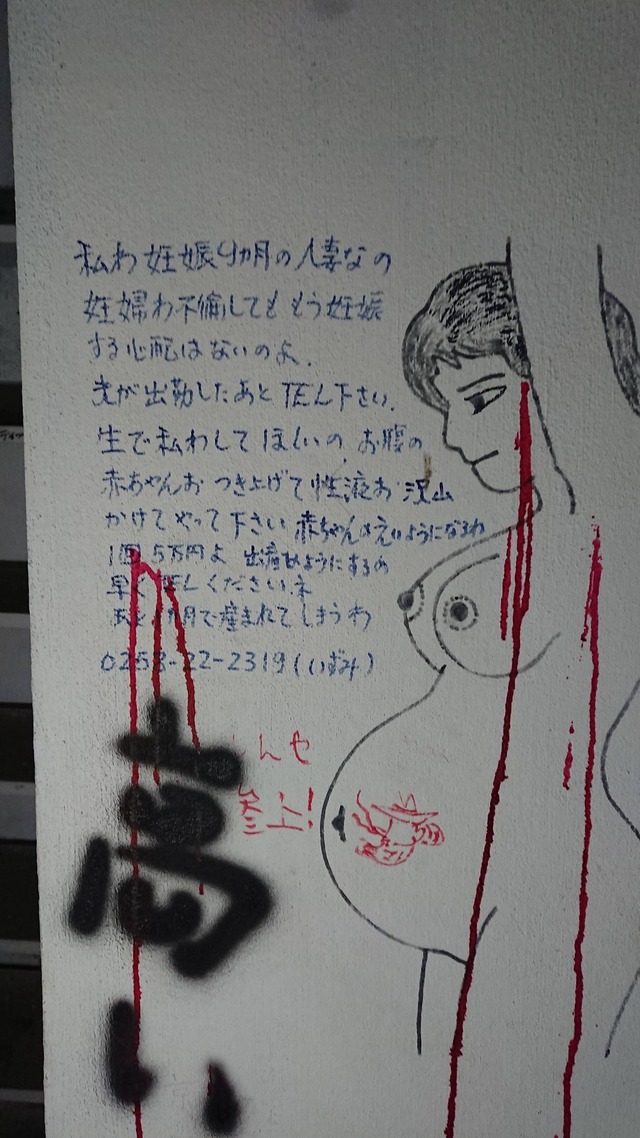 私わ妊娠9カ月の人妻なの
妊婦わ不倫しても もう妊娠
する心配はないのよ.
夫が出勤したあと TEL下さい.
生で私わしてほしいの、お腹の
赤ちゃんお つき上げて性液お 沢山
かけてやって下さい 赤ちゃんのえいようになるわ
1回 5万円よ 出産せようにするの
早く TELくださいネ
あと1カ月で産まれてしまうわ
0258-22-2319(いずみ)
んせ
参上!
い